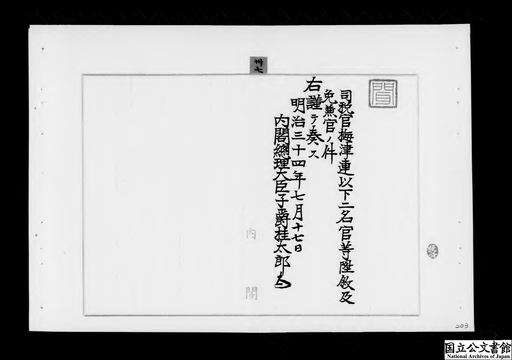 卅七
司税官梅津連以下二名官等陞敘及
免兼官ノ件
右謹テ奏ス
明治三十四年七月十七日
内閣總理大臣子爵桂太郎
内閣
203
国立公文書館
National Archives of Japan